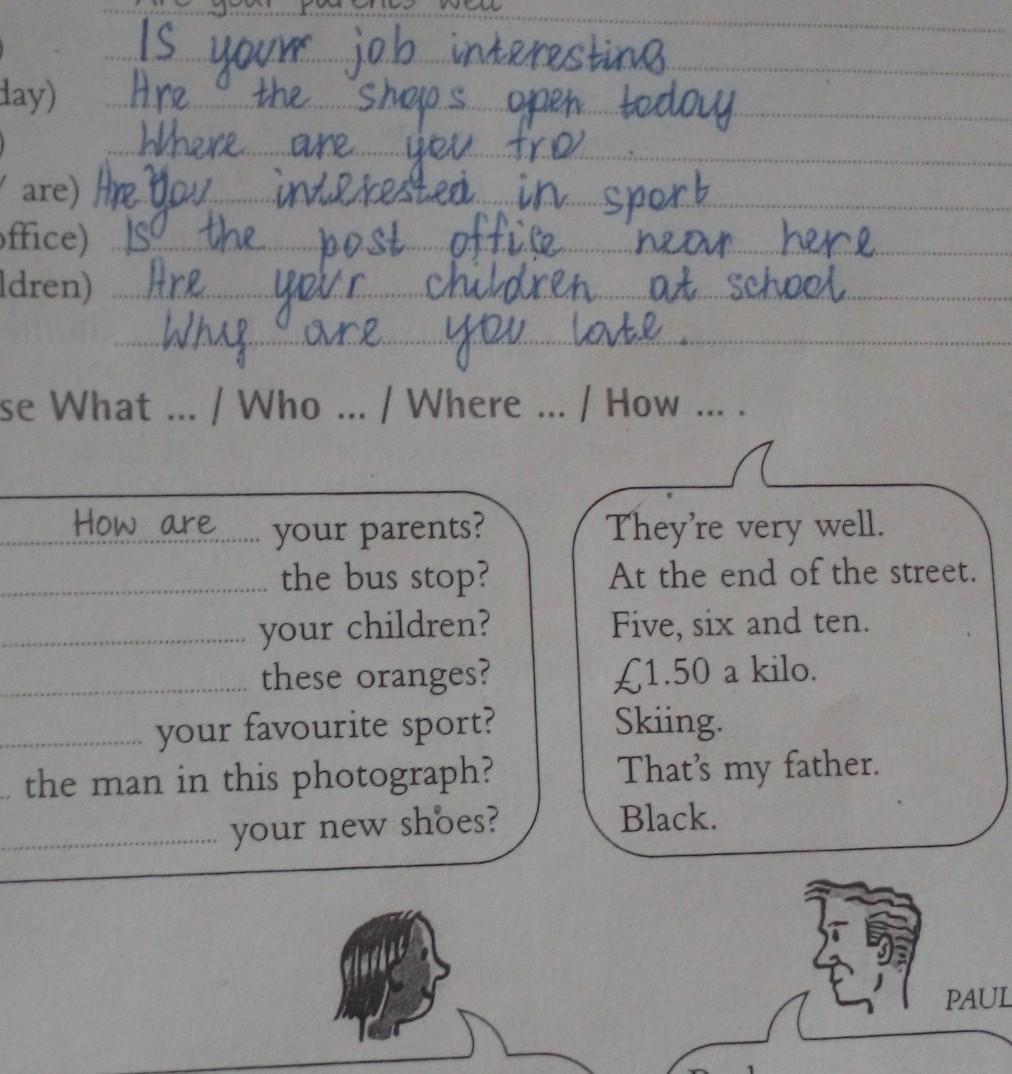 Are your parents well
) Is your job interesting
day) Are the shops open today
) Where are you fro
/ are) Are you interested in sport
office) Is the post office near here
ldren) Are your children at school
Why are you late.
se What ... / Who ... / Where ... / How ... .
How are your parents? They're very well.
the bus stop? At the end of the street.
your children? Five, six and ten.
these oranges? £1.50 a kilo.
your favourite sport? Skiing.
the man in this photograph? That's my father.
your new shoes? Black.
PAUL